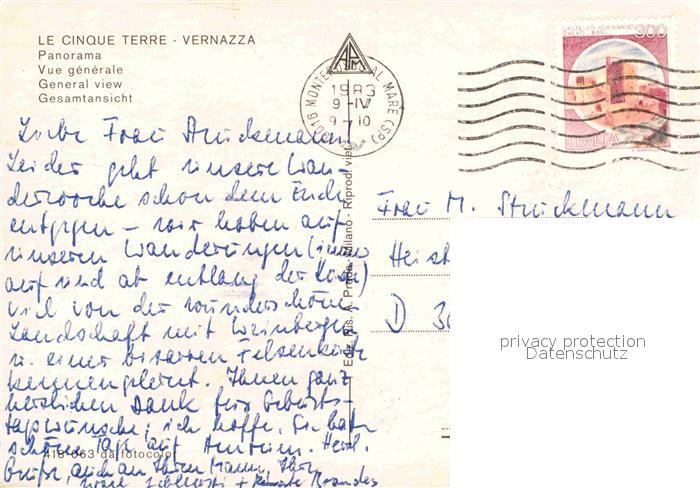 LE CINQUE TERRE - VERNAZZA
Panorama
Vue générale
General view
Gesamtansicht
19016 MONTEROSSO AL MARE (SP)
1983
9-IV
9-10
300
ITALIA
Liebe Frau Struckmann
Leider geht unsere Wan-
derwoche schon dem Ende
entgegen – wir haben auf
unseren Wanderungen (immer
auf und ab entlang der
viel von der wunderschönen
Landschaft mit Weinbergen
u. einer bizarren Felsenküste
kennengelernt. Ihnen ganz
herzlichen Dank für Geburts-
tagswünsche; ich hoffe, Sie hatten
schöne Tage auf Herzl.
Grüße, auch an Ihren Mann, Ihre
+ Brandes
Frau M. Struckmann
Heist
D 30
Ediz. Ris. A. Milano - Riprod. viet.
418-063 da fotocolor
privacy protection
Datenschutz